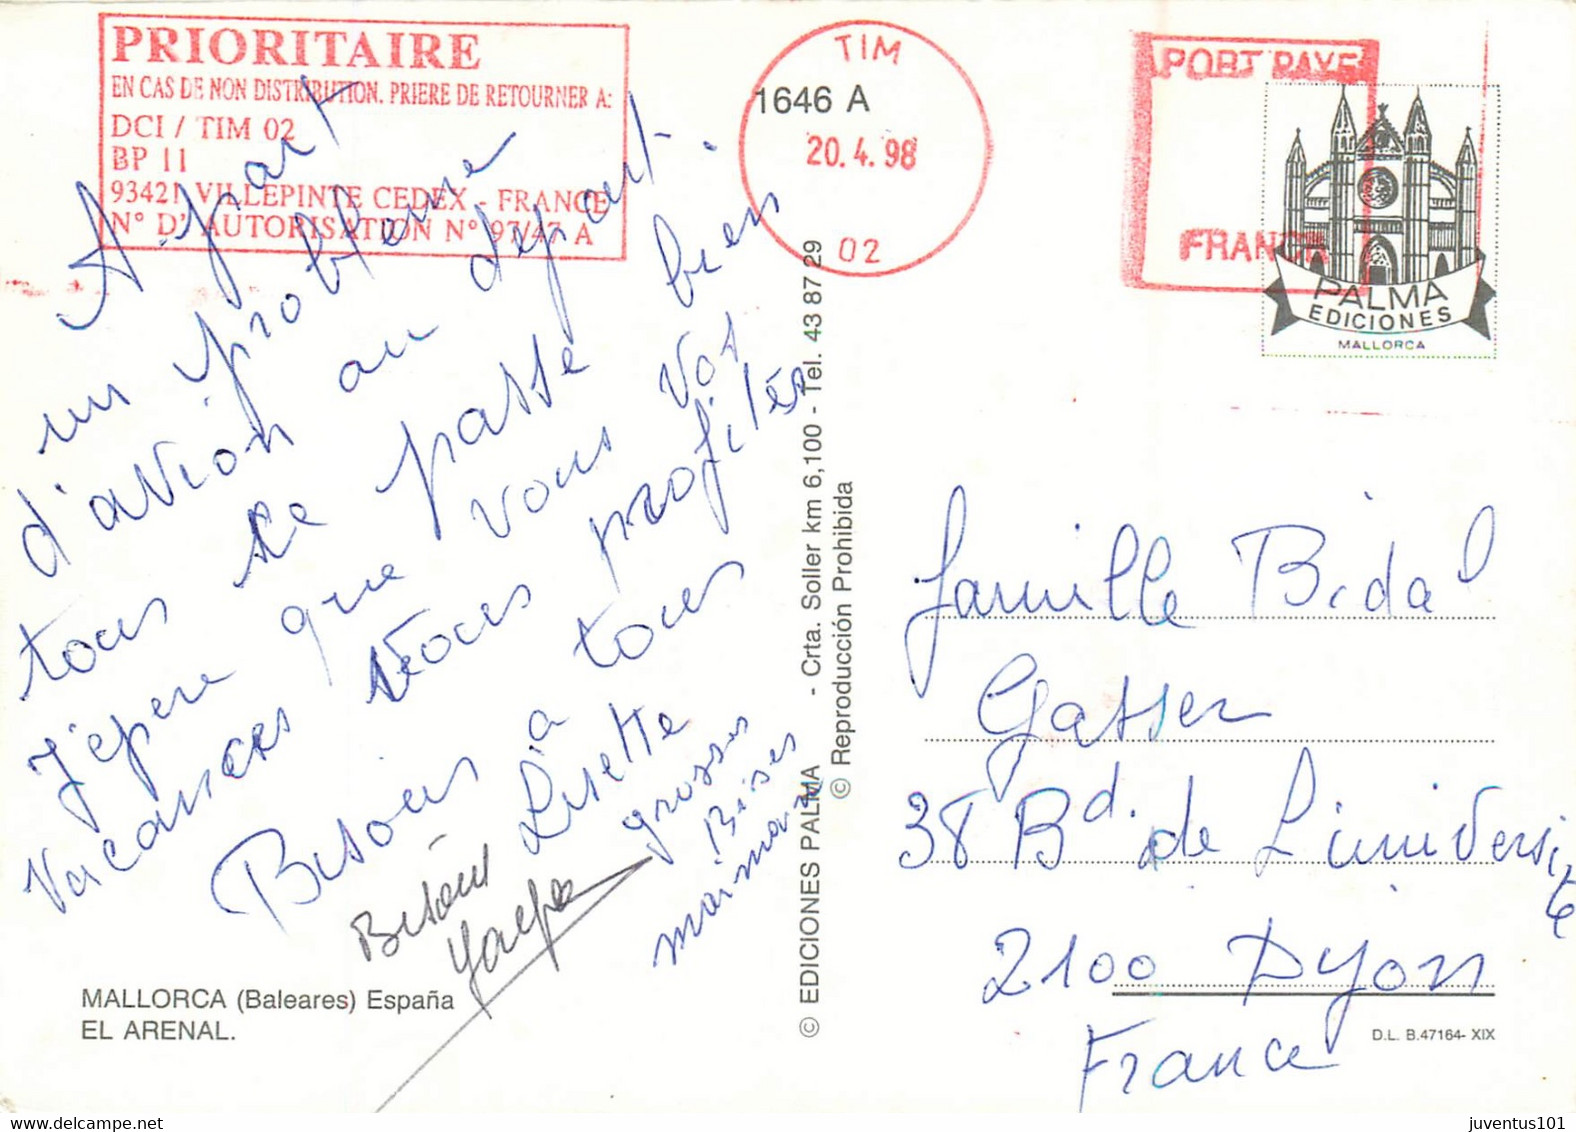 PRIORITAIRE
EN CAS DE NON DISTRIBUTION. PRIERE DE RETOURNER A:
DCI / TIM 02
BP 11
93421 VILLEPINTE CEDEX - FRANCE
N° D'AUTORISATION N° 97/47 A
TIM
1646 A
20.4.98
02
PORT PAYE
FRANCE
PALMA
EDICIONES
MALLORCA
A part
un problème
d'avion au départ.
tous se passe bien
J'épere que vous vos
vacances vous profités
Bisous à tous
Lisette
grosses
Bises
Bisous
MALLORCA (Baleares) España
EL ARENAL.
© EDICIONES PALMA - Crta. Soller km 6,100 - Tel. 43 87 29
© Reproducción Prohibida
famille Bidal
Gasser
38 Bd. de L'université
2100 Dyon
France
D.L. B.47164- XIX
www.delcampe.net
juventus101